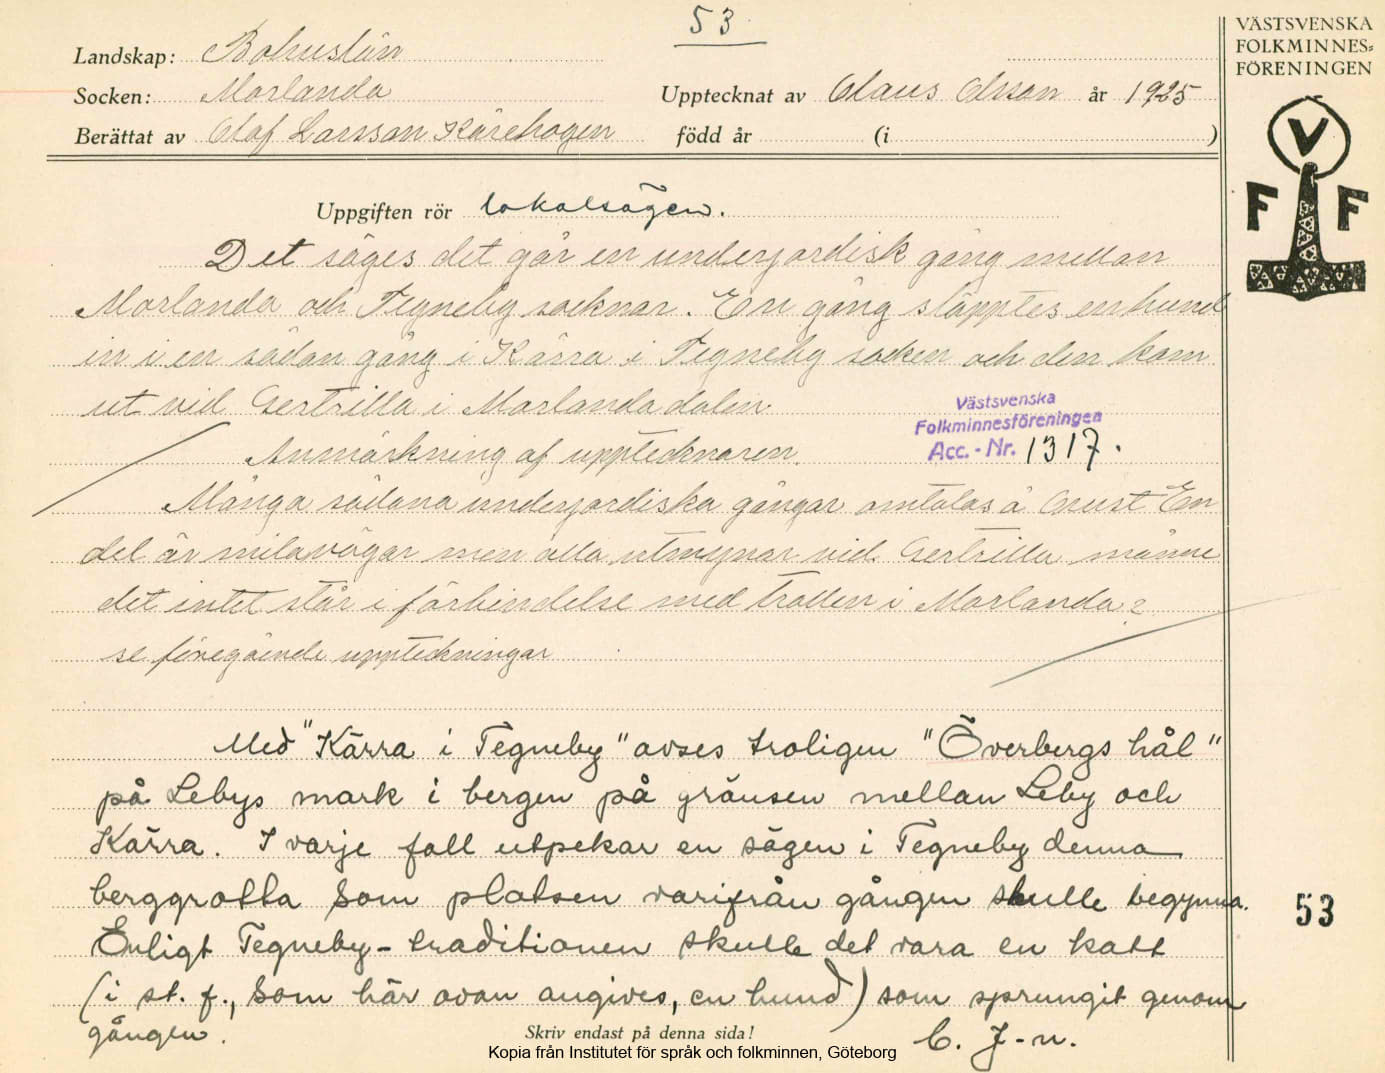 53
VÄSTSVENSKA
FOLKMINNES=
FÖRENINGEN
Landskap: Bohuslän
Socken: Morlanda
Upptecknat av Claus Olsson år 1925
Berättat av Olof Larsson Kärehogen född år (i )
V
F F
Uppgiften rör lokalsägen.
Det säges det går en underjordisk gång mellan
Morlanda och Tegneby socknar. En gång släpptes en hund
in i en sådan gång i Kärra i Tegneby socken och den kom
ut vid Gertrilla i Morlanda dalen.
Västsvenska
Folkminnesföreningen
Acc.-Nr. 1317.
Anmärkning af upptecknaren.
Många sådana underjordiska gångar omtalas å Orust En
del är milavägar men alla utmynar vid Gertrilla månne
det intet står i förbindelse med trollen i Morlanda?
se föregående uppteckningar
Med "Kärra i Tegneby" avses troligen "Överbergs hål"
på Lebys mark i bergen på gränsen mellan Leby och
Kärra. I varje fall utpekar en sägen i Tegneby denna
berggrotta som platsen varifrån gången skulle begynna.
53
Enligt Tegneby-traditionen skulle det vara en katt
(i st. f., som här ovan angives, en hund) som sprungit genom
gången.
Skriv endast på denna sida!
C. J-n.
Kopia från Institutet för språk och folkminnen, Göteborg